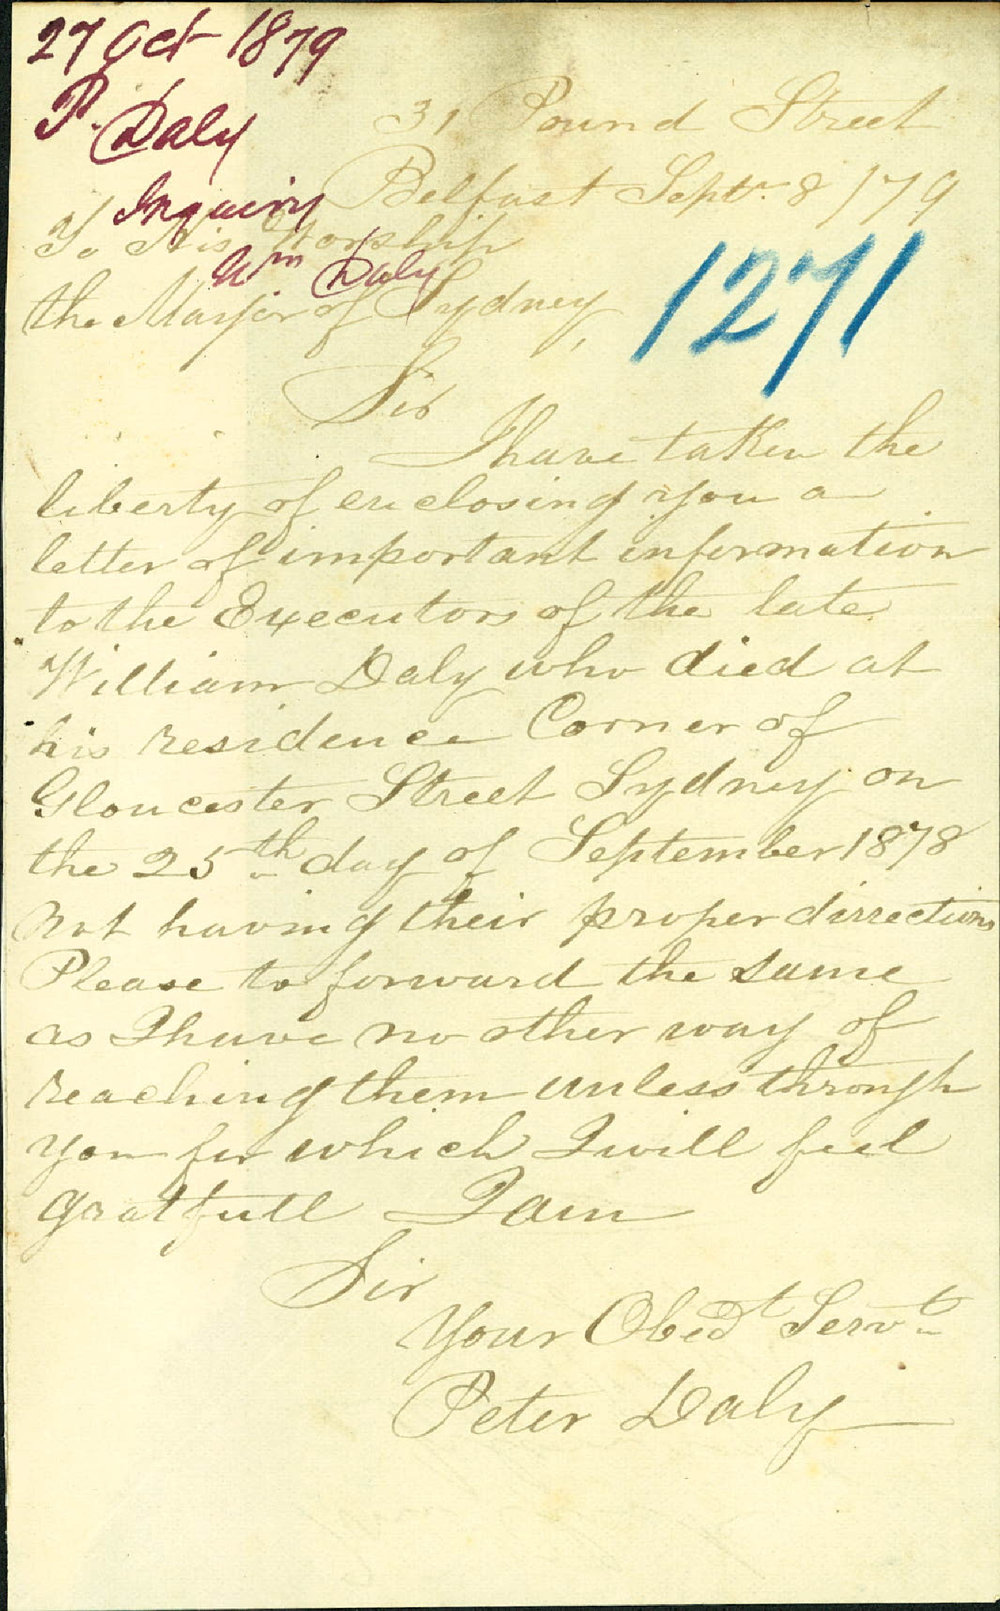 27 Oct 1879
P. Daly
Inquiry
Wm Daly
1271
31 Pound Street
Belfast Septr. 8/79
To His Worship
the Mayor of Sydney,
Sir
I have taken the
liberty of enclosing you a
letter of important information
to the Executors of the late
William Daly who died at
his residence Corner of
Gloucester Street Sydney on
the 25th day of September 1878
Not having their proper dirrections
Please to forward the same
as I have no other way of
reaching them unless through
you for which I will feel
gratfull I am
Sir
Your Obedt Servt
Peter Daly